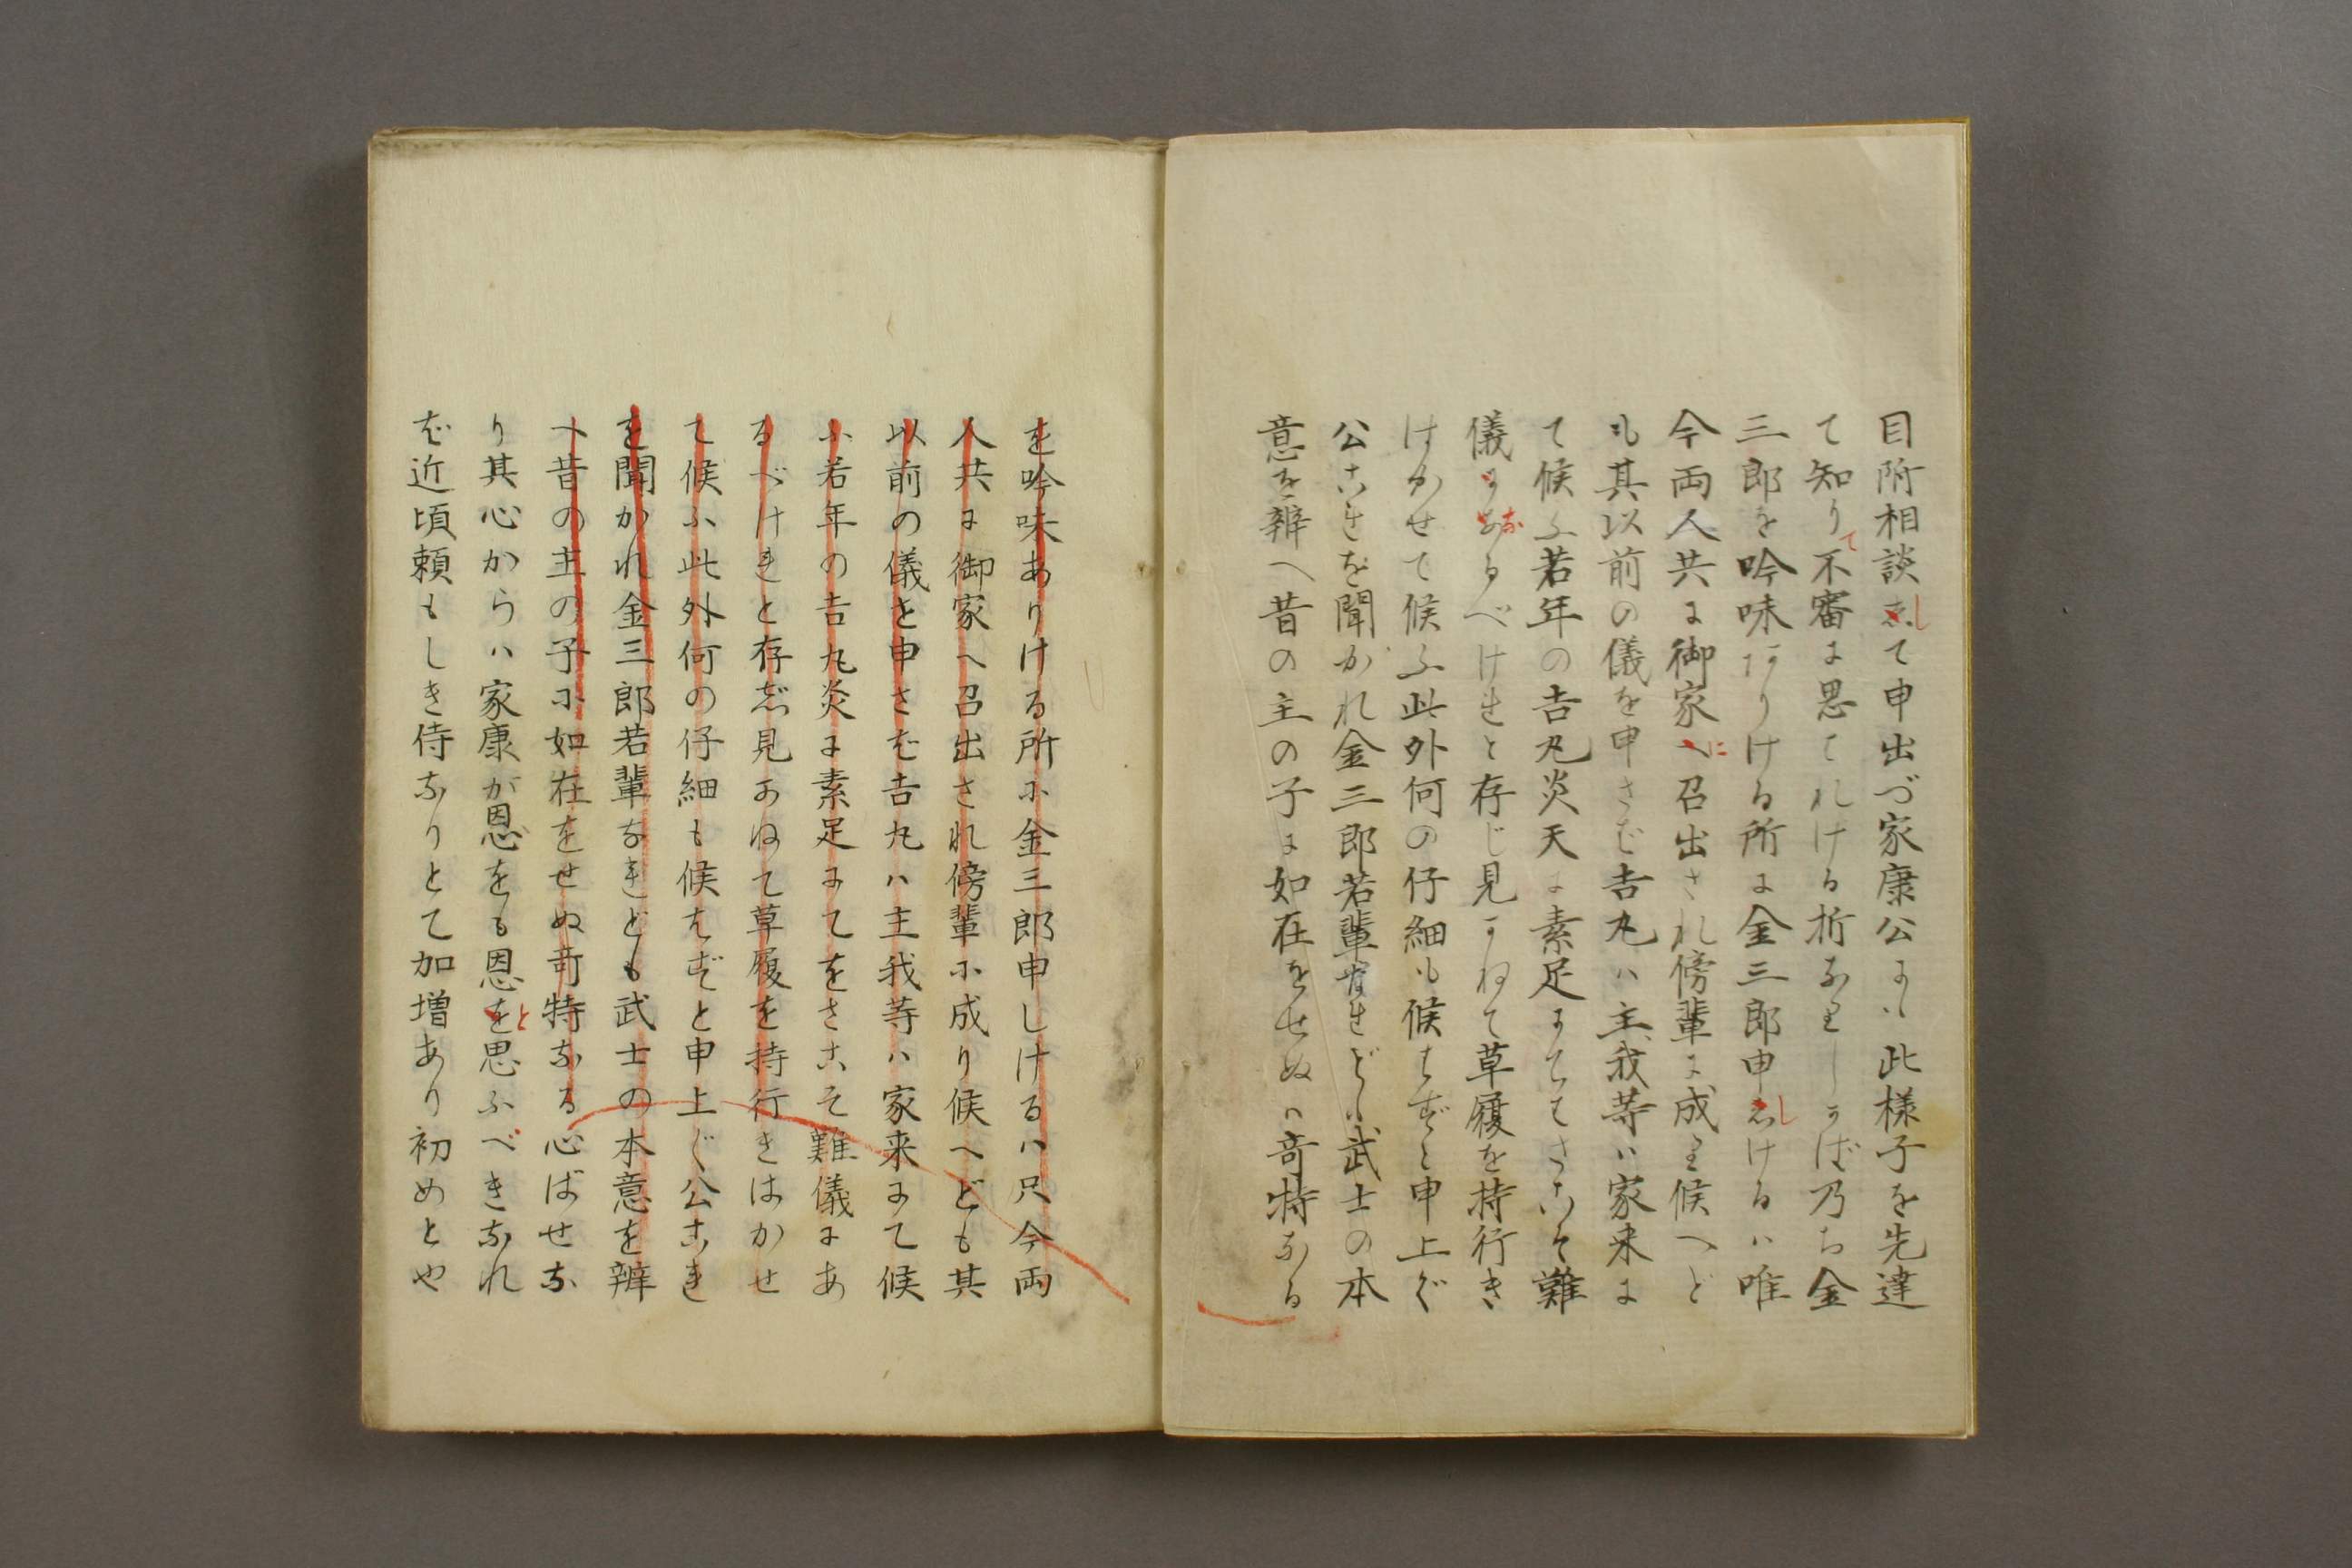 目附相談志して申出づ家康公にハ此様子を先達
て知りて不審に思はれける折なりしかば乃ち金
三郎を吟味ありける所に金三郎申志しけるハ唯
今両人共に御家へに召出され傍輩に成り候へど
も其以前の儀を申さば吉丸ハ主我等ハ家来に
て候ふ若年の吉丸炎天に素足にてはさこそ難
儀にあなるべけれと存じ見かねて草履を持行き
はかせて候ふ此外何の仔細も候はずと申上ぐ
公これを聞かれ金三郎若輩なれども武士の本
意を辨へ昔の主の子に如在をせぬハ奇特なる
を吟味ありける所に金三郎申しけるハ只今両
人共に御家へ召出され傍輩に成り候へども其
以前の儀を申さば吉丸ハ主我等ハ家来にて候
ふ若年の吉丸炎に素足にてをさこそ難儀にあ
るべけれと存じ見かねて草履を持行きはかせ
て候ふ此外何の仔細も候はずと申上ぐ公これ
を聞かれ金三郎若輩なれども武士の本意を辨
へ昔の主の子に如在をせぬ奇特なる心ばせな
り其心からハ家康が恩をも恩をと思ふべきなれ
ば近頃頼もしき侍なりとて加増あり初めとや